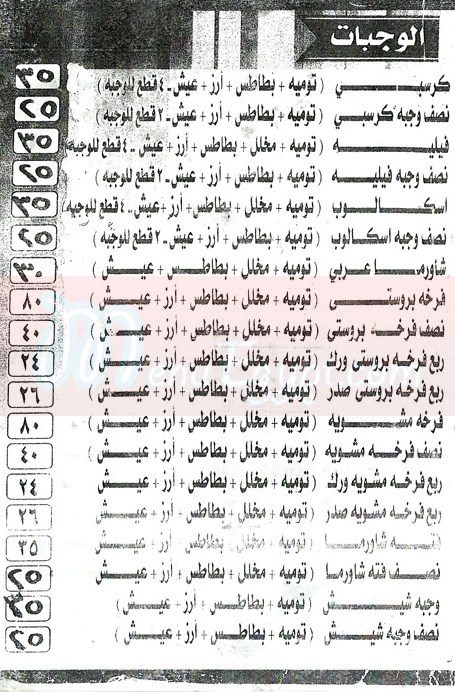 الوجبات
كرسبي ( توميه + بطاطس + أرز + عيش ـ ٤ قطع للوجبه ) ٣٥
نصف وجبه كرسبي ( توميه + بطاطس + أرز + عيش ـ ٢ قطع للوجبه ) ٢٥
فيليه ( توميه + مخلل + بطاطس + أرز + عيش .. ٤ قطع للوجبه ) ٣٥
نصف وجبه فيليه ( توميه + بطاطس + أرز + عيش ـ ٢ قطع للوجبه ) ٢٥
اسكالوب ( توميه + مخلل + بطاطس + أرز + عيش ـ ٤ قطع للوجبه ) ٣٥
نصف وجبه اسكالوب ( توميه + بطاطس + أرز + عيش ـ ٢ قطع للوجبه ) ٢٥
شاورما عربي ( توميه + مخلل + بطاطس + عيش ) ٣٠
فرخه بروستي ( توميه + مخلل + بطاطس + أرز + عيش ) ٨٠
نصف فرخه بروستي ( توميه + مخلل + بطاطس + أرز + عيش ) ٤٠
ربع فرخه بروستي ورك ( توميه + مخلل + بطاطس + أرز + عيش ) ٢٤
ربع فرخه بروستي صدر ( توميه + مخلل + بطاطس + أرز + عيش ) ٢٦
فرخه مشويه ( توميه + مخلل + بطاطس + أرز + عيش ) ٨٠
نصف فرخه مشويه ( توميه + مخلل + بطاطس + أرز + عيش ) ٤٠
ربع فرخه مشويه ورك ( توميه + مخلل + بطاطس + أرز + عيش ٢٤
ربع فرخه مشويه صدر ( توميه + مخلل + بطاطس + أرز + عيش ٢٦
فته شاورما ( توميه + مخلل + بطاطس + أرز + عيش ٣٥
نصف فته شاورما ( توميه + مخلل + بطاطس + أرز + عيش ٢٥
وجبه شيش ( توميه + بطاطس + أرز + عيش )
نصف وجبه شيش ( توميه + بطاطس + أرز + عيش ) ٢٥